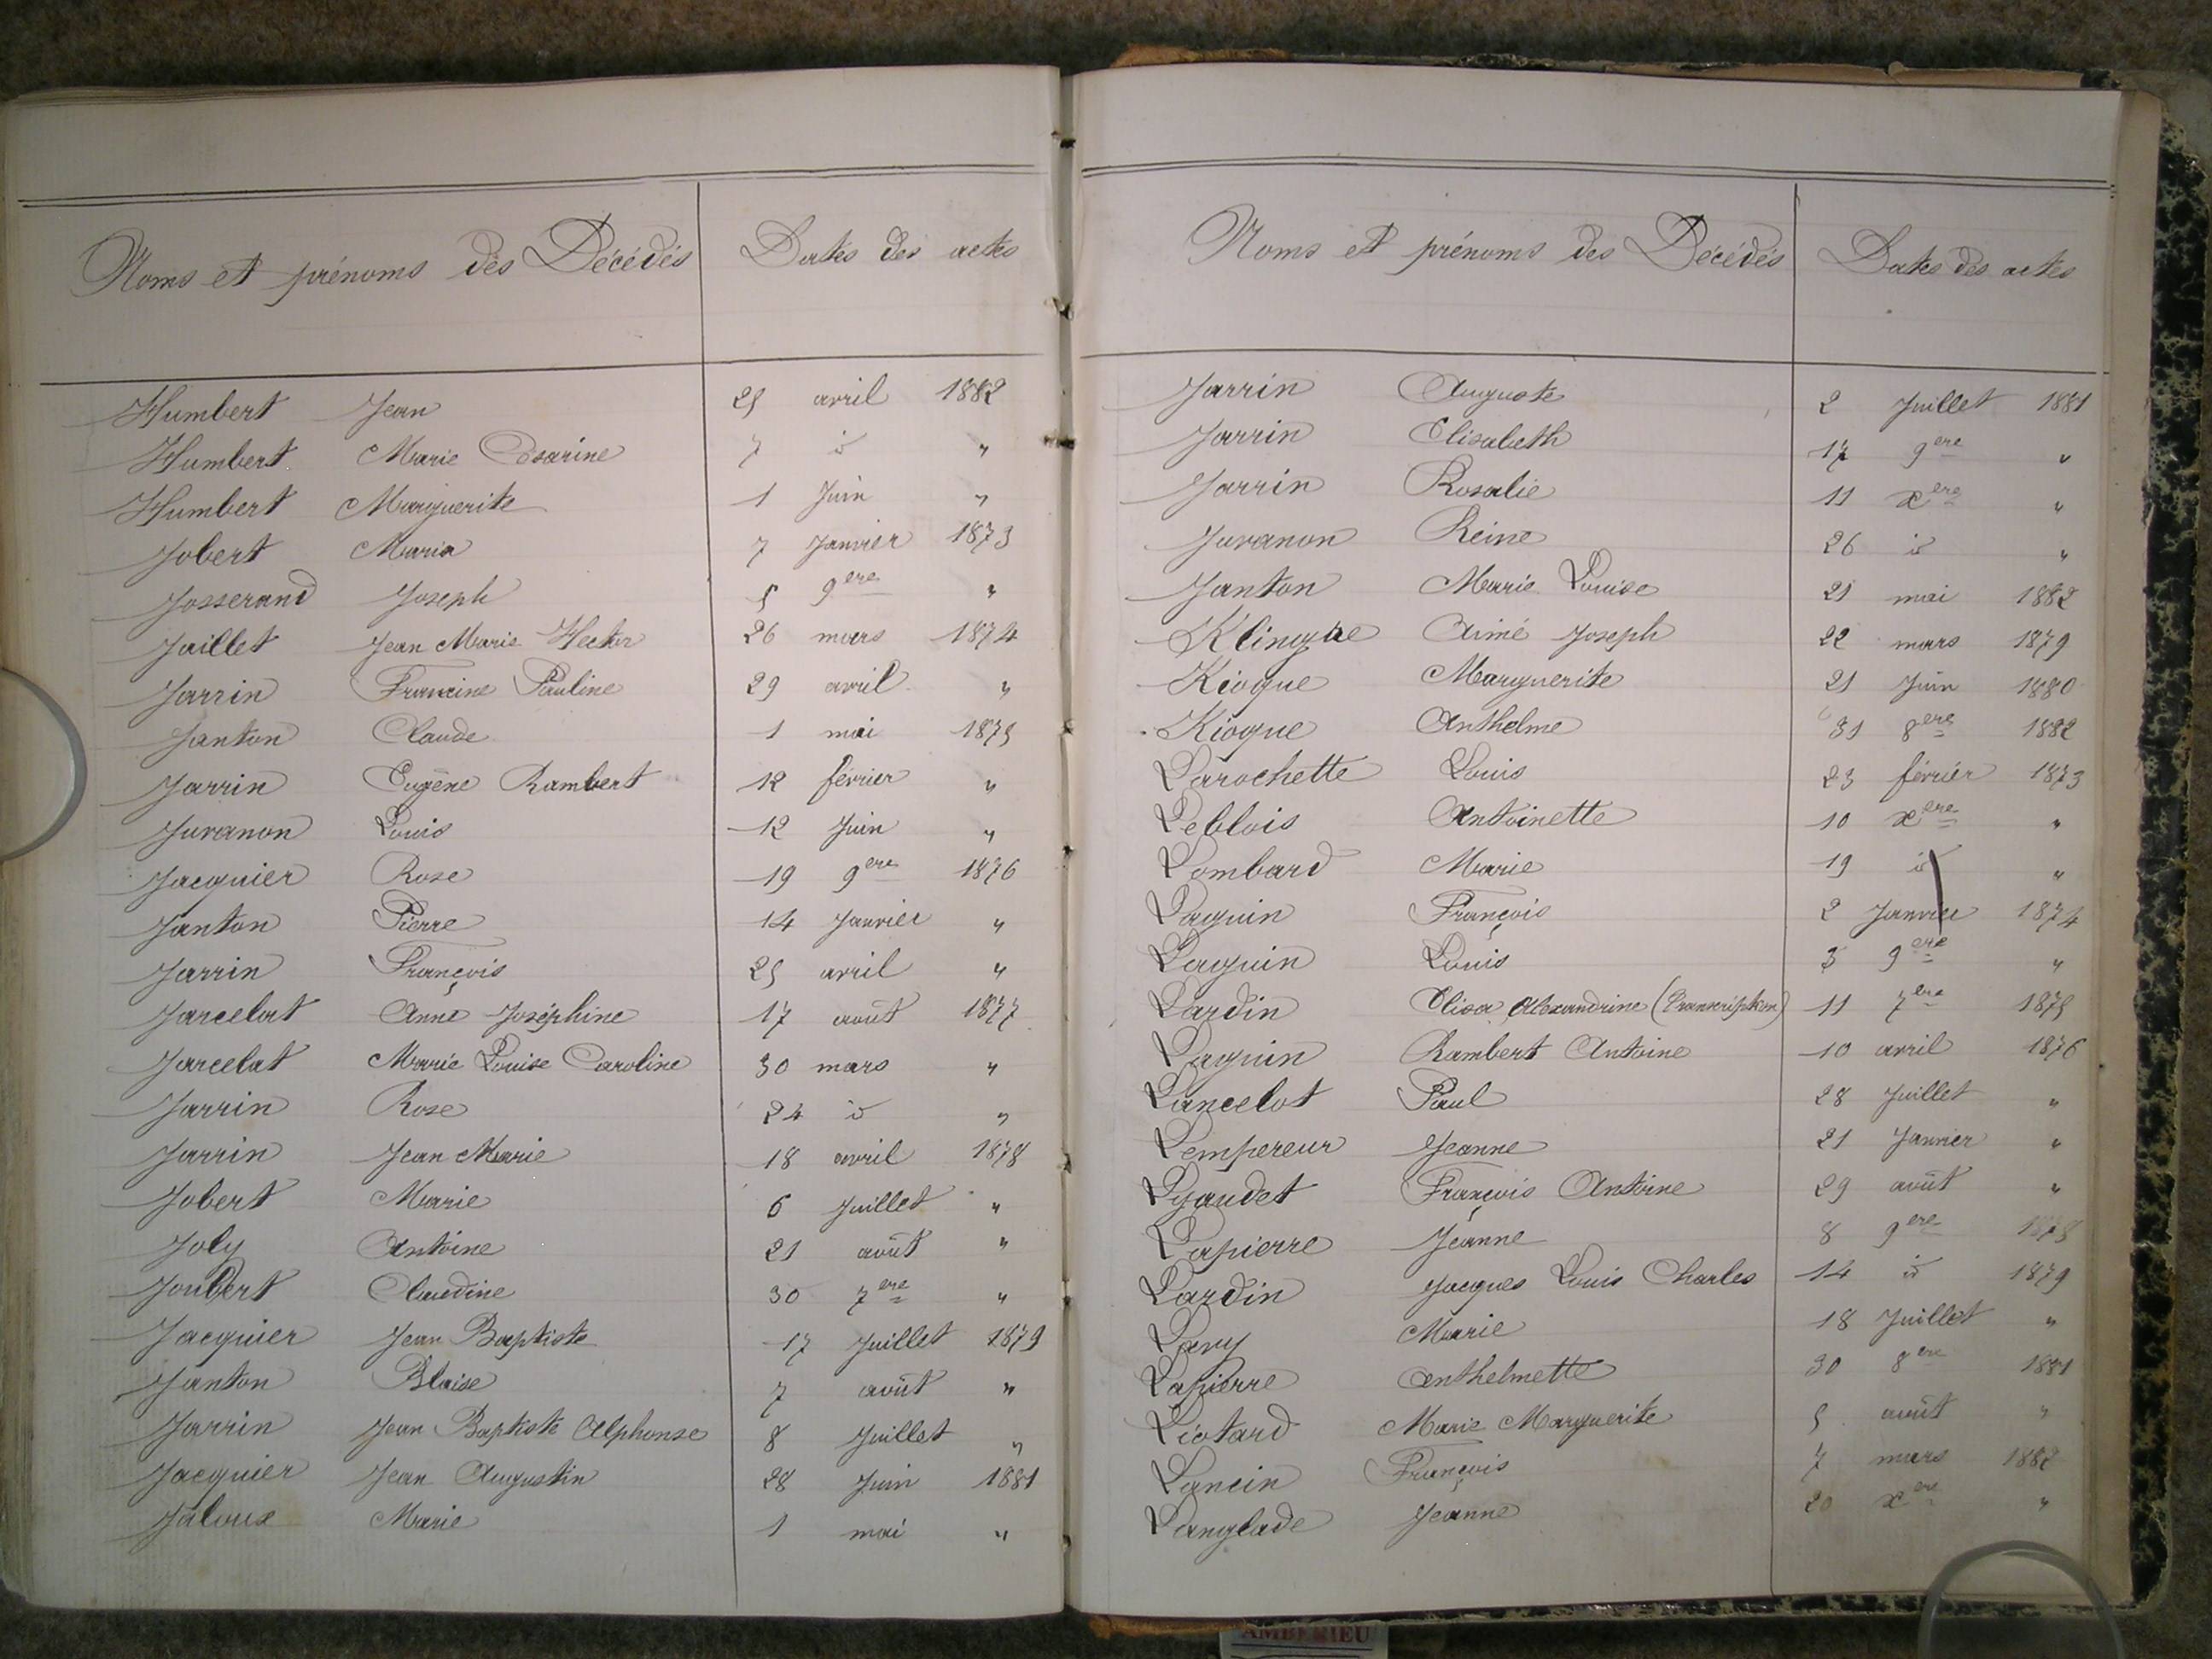 Noms et prénoms des Décédés Dates des actes
Humbert Jean 25 avril 1882
Humbert Marie Césarine 7 id "
Humbert Marguerite 1 Juin "
Jobert Maria 7 Janvier 1873
Josserand Joseph 5 9ere "
Jaillet Jean Marie Hector 26 mars 1874
Jarrin Francine Pauline 29 avril "
Janton Claude 1 mai 1875
Jarrin Eugène Rambert 12 février "
Juvanon Louis 12 Juin "
Jacquier Rose 19 9ere 1876
Janton Pierre 14 Janvier "
Jarrin François 25 avril "
Jarcelat Anne Joséphine 17 août 1877
Jarcelat Marie Louise Caroline 30 mars "
Jarrin Rose 24 id "
Jarrin Jean Marie 18 avril 1878
Jobert Marie 6 Juillet "
Joly Antoine 21 août "
Joubert Claudine 30 7ere "
Jacquier Jean Baptiste 17 Juillet 1879
Janton Blaise 7 août "
Jarrin Jean Baptiste Alphonse 8 Juillet "
Jacquier Jean Augustin 28 Juin 1881
Jaloux Marie 1 mai "
Noms et prénoms des Décédés Dates des actes
Jarrin Auguste 2 Juillet 1881
Jarrin Elisabeth 17 9ere "
Jarrin Rosalie 11 xere "
Juvanon Reine 26 id "
Janton Marie Louise 21 mai 1882
Aimé Joseph 22 mars 1879
Kiogue Marguerite 21 Juin 1880
Kiogue Anthelme 31 8ere 1882
Larochette Louis 23 février 1873
Leblois Antoinette 10 xere "
Lombard Marie 19 id "
Laguin François 2 Janvier 1874
Laguin Louis 3 9ere "
Lardin Elisa Alexandrine (Transcription) 11 7ere 1875
Laguin Rambert Antoine 10 avril 1876
Lancelot Paul 28 Juillet "
Lempereur Jeanne 21 Janvier "
Lyaudet François Antoine 29 août "
Lapierre Jeanne 8 9ere 1878
Lardin Jacques Louis Charles 14 id 1879
Lavy Marie 18 Juillet "
Lapierre Anthelmette 30 8ere 1881
Liotard Marie Marguerite 5 août "
Lancin François 7 mars 1882
Langlade Jeanne 20 xere "
AMBERIEU